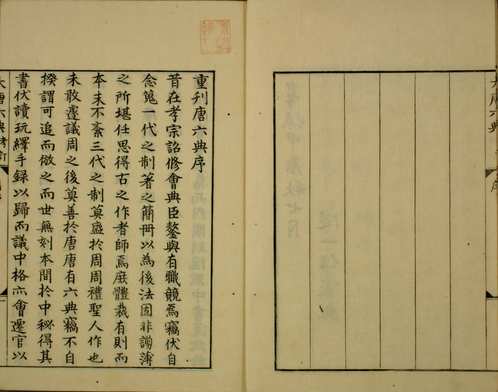 重刋唐六典序
昔在孝宗詔修會典臣鏊與有職競焉竊伏自
念蒐一代之制著之簡冊以為後法固非謭薄
之所堪任思得古之作者師焉庶體裁有則而
本末不紊三代之制莫盛於周周禮聖人作也
未敢遽議周之後莫善於唐唐有六典竊不自
揆謂可追而倣之而世無刻本間於中秘得其
書伏讀玩繹手録以歸而議中格亦會遷官以
大唐六典